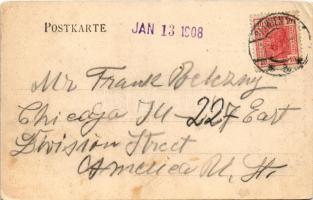 POSTKARTE
JAN 13 1908
Mr Frank
Chicago Ill 227 East
Division Street
America U. St.